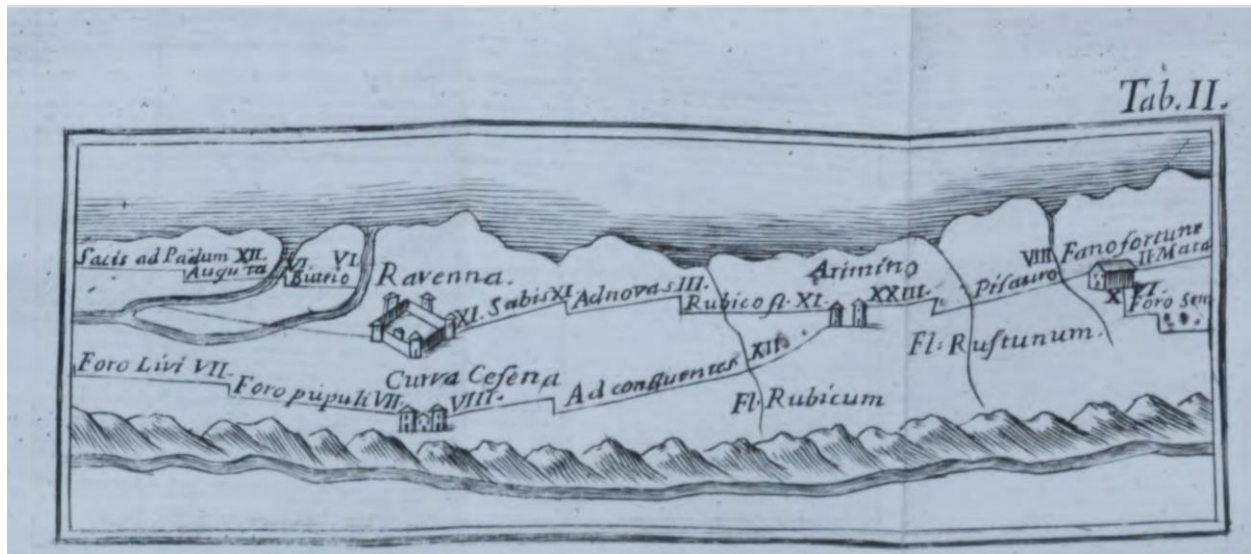 Tab. II.
Sacis ad Padum XII.
Augusta
VI.
Butrio
VI.
Ravenna.
XI. Sabis XI.
Ad novas III.
Rubico fl. XI.
Arimino
XXIII.
Pisauro
VIII
Fano fortune
II. Mata
X
VI.
Foro Sem
Foro Livi VII.
Foro pupuli VII.
Curva Cesena
VIII.
Ad confluentes XII.
Fl. Rubicum
Fl: Rustunum.